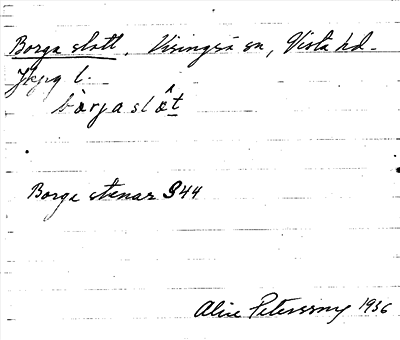 Borga slott. Visingsö sn, Vista hd.
Jkpg l.
bòrjaslæ̂t
Borga stenar 344
Alice Petersson 1936